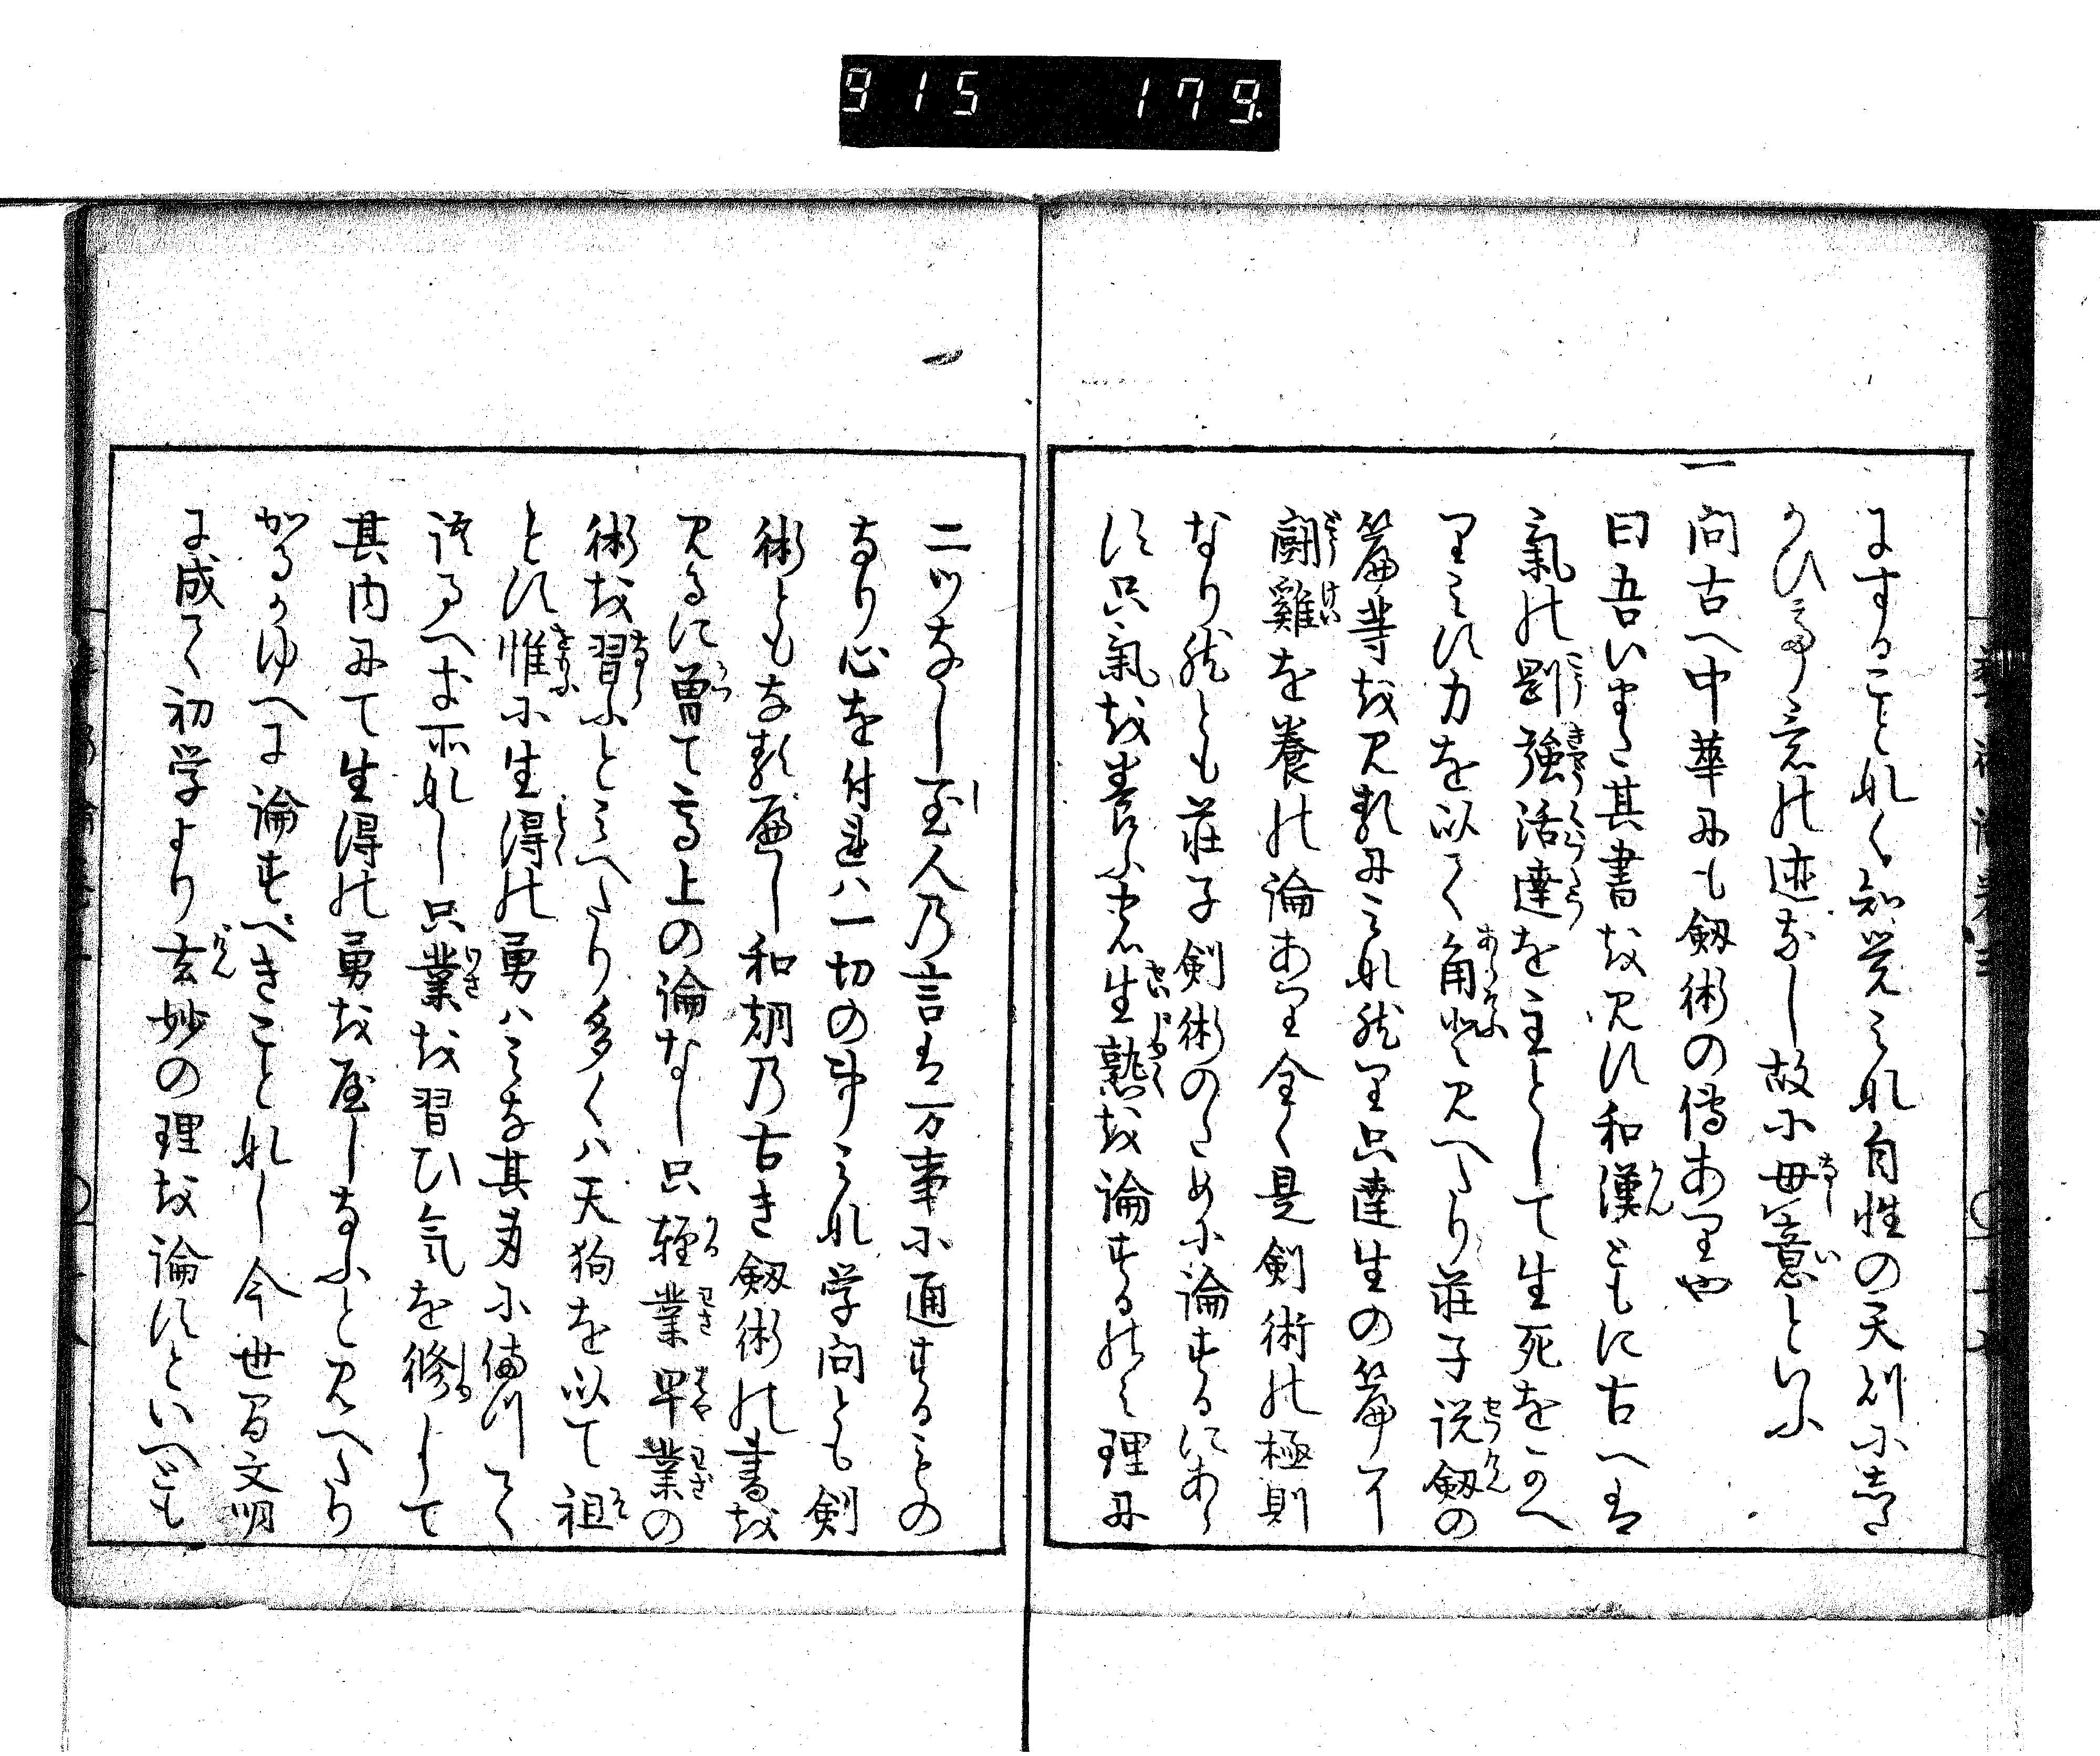 915 179.
にすることなく知覚これ自性の天則にしたがひて
がひて意の迹なし故に毋意といふ
一問古へ中華にも剱術の傳ありや
曰吾いまだ其書を見ず和漢ともに古へは
氣の剛強活達を主として生死をかへ
りみず力を以て角ふと見へたり荘子説剱の
篇等を見るにこれ然り只達生の篇中
闘雞を養の論あり全く是剣術の極則
なり然とも荘子剣術のために論ずるにあら
ず只氣を養ふ事の生熟を論ずるのみ理に
二ツなし至人の言は万事に通ずるもの
なり心を付れは一切の事これ学問とも剣
術ともなるべし和朝の古き剱術の書を
見るに曽て高上の論なし只軽業早業の
術を習ふとみへたり多くは天狗を以て祖
とす惟ふに生得の勇はみな其身に備つて
語るへき所なし只業を習ひ気を修して
其内にて生得の勇を屋しなふと見へたり
かるかゆへに論ずべきことなし今世間文明
に成て初学より玄妙の理を論ずといへども